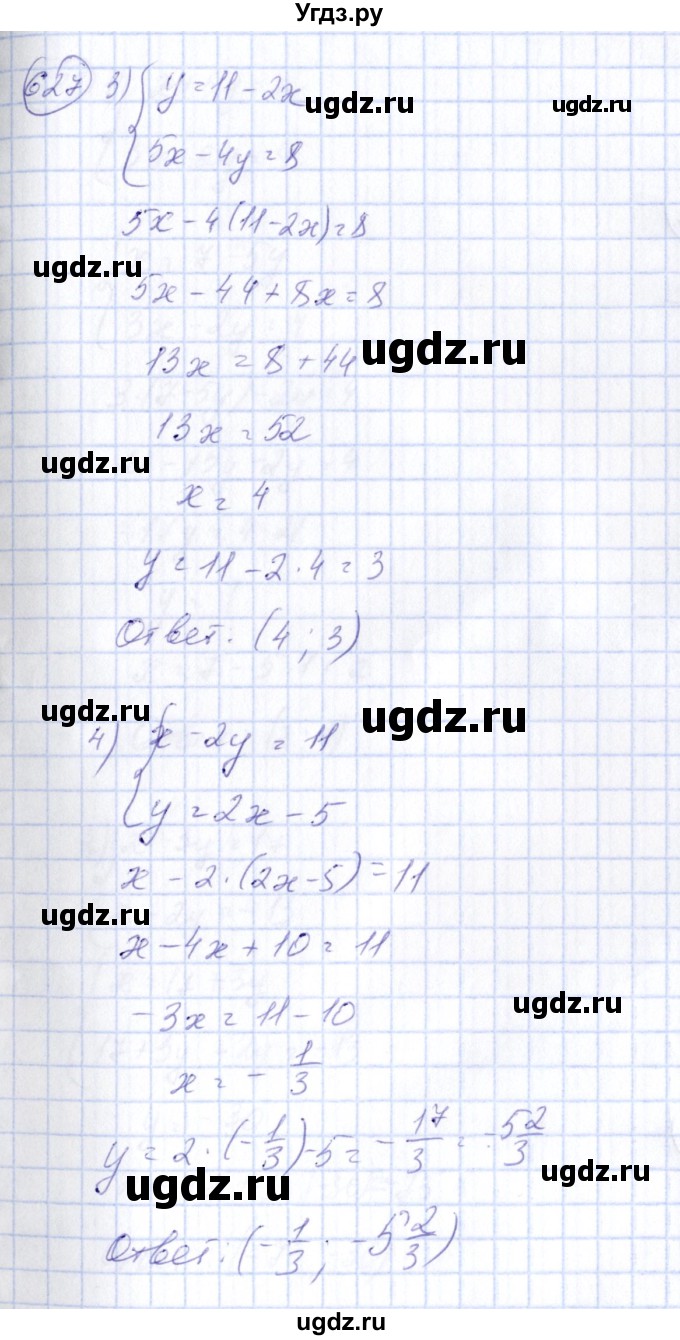 Угдз.ру
627 3) { y = 11 - 2x
ugdz.ru ugdz.ru
5x - 4y = 8
5x - 4(11 - 2x) = 8
ugdz.ru
5x - 44 + 8x = 8
13x = 8 + 44
ugdz.ru
13x = 52
ugdz.ru
x = 4
y = 11 - 2 · 4 = 3
Ответ: (4; 3)
ugdz.ru ugdz.ru
4) { x - 2y = 11
y = 2x - 5
x - 2 · (2x - 5) = 11
ugdz.ru
x - 4x + 10 = 11
ugdz.ru
-3x = 11 - 10
x = - 1/3
y = 2 · (- 1/3) - 5 = - 17/3 = -5 2/3
ugdz.ru ugdz.ru
Ответ: (- 1/3; -5 2/3)
ugdz.ru